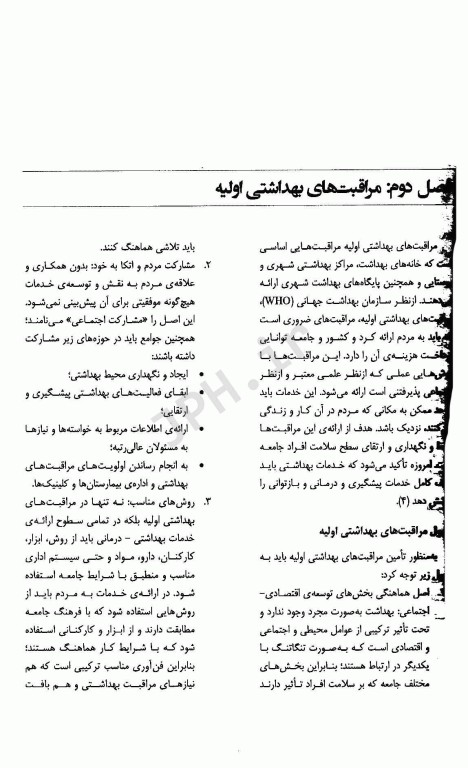 فصل دوم: مراقبت‌های بهداشتی اولیه
مراقبت‌های بهداشتی اولیه مراقبت‌هایی اساسی
که خانه‌های بهداشت، مراکز بهداشتی شهری و
و همچنین پایگاه‌های بهداشت شهری ارائه
ازنظر سازمان بهداشت جهانی (WHO)،
بهداشتی اولیه، مراقبت‌های ضروری است
به مردم ارائه کرد و کشور و جامعه توانایی
هزینه‌ی آن را دارد. این مراقبت‌ها با
عملی که ازنظر علمی معتبر و ازنظر
پذیرفتنی است ارائه می‌شود. این خدمات باید
ممکن به مکانی که مردم در آن کار و زندگی
نزدیک باشد. هدف از ارائه‌ی این مراقبت‌ها
و نگهداری و ارتقای سطح سلامت افراد جامعه
امروزه تأکید می‌شود که خدمات بهداشتی باید
کامل خدمات پیشگیری و درمانی و بازتوانی را
دهد (۴).
مراقبت‌های بهداشتی اولیه
به‌منظور تأمین مراقبت‌های بهداشتی اولیه باید به
زیر توجه کرد:
اصل هماهنگی بخش‌های توسعه‌ی اقتصادی-
اجتماعی: بهداشت به‌صورت مجرد وجود ندارد و
تحت تأثیر ترکیبی از عوامل محیطی و اجتماعی
و اقتصادی است که به‌صورت تنگاتنگ با
یکدیگر در ارتباط هستند؛ بنابراین بخش‌های
مختلف جامعه که بر سلامت افراد تأثیر دارند
باید تلاشی هماهنگ کنند.
۲. مشارکت مردم و اتکا به خود: بدون همکاری و
علاقه‌ی مردم به نقش و توسعه‌ی خدمات
هیچ‌گونه موفقیتی برای آن پیش‌بینی نمی‌شود.
این اصل را «مشارکت اجتماعی» می‌نامند؛
همچنین جوامع باید در حوزه‌های زیر مشارکت
داشته باشند:
• ایجاد و نگهداری محیط بهداشتی؛
• ابقای فعالیت‌های بهداشتی پیشگیری و
ارتقایی؛
• ارائه‌ی اطلاعات مربوط به خواسته‌ها و نیازها
به مسئولان عالی‌رتبه؛
• به انجام رساندن اولویت‌های مراقبت‌های
بهداشتی و اداره‌ی بیمارستان‌ها و کلینیک‌ها.
۳. روش‌های مناسب: نه تنها در مراقبت‌های
بهداشتی اولیه بلکه در تمامی سطوح ارائه‌ی
خدمات بهداشتی - درمانی باید از روش، ابزار،
کارکنان، دارو، مواد و حتی سیستم اداری
مناسب و منطبق با شرایط جامعه استفاده
شود. در ارائه‌ی خدمات به مردم باید از
روش‌هایی استفاده شود که با فرهنگ جامعه
مطابقت دارند و از ابزار و کارکنانی استفاده
شود که با شرایط کار هماهنگ هستند؛
بنابراین فن‌آوری مناسب ترکیبی است که هم
نیازهای مراقبت بهداشتی و هم بافت
3PH.ir